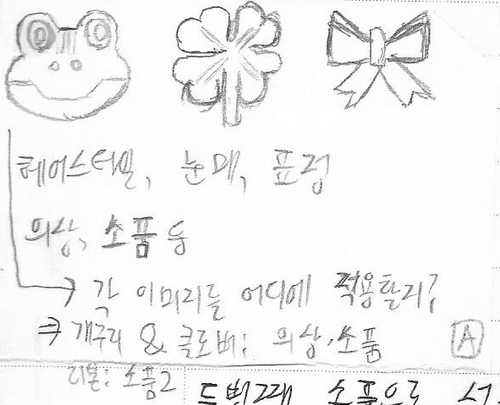 헤어스타일, 눈매, 표정
의상, 소품 등
→ 각 이미리를 어디에 적용할지?
⇒ 개구리 & 클로버: 의상·소품
A
리본: 소품2
두번째 소품으로